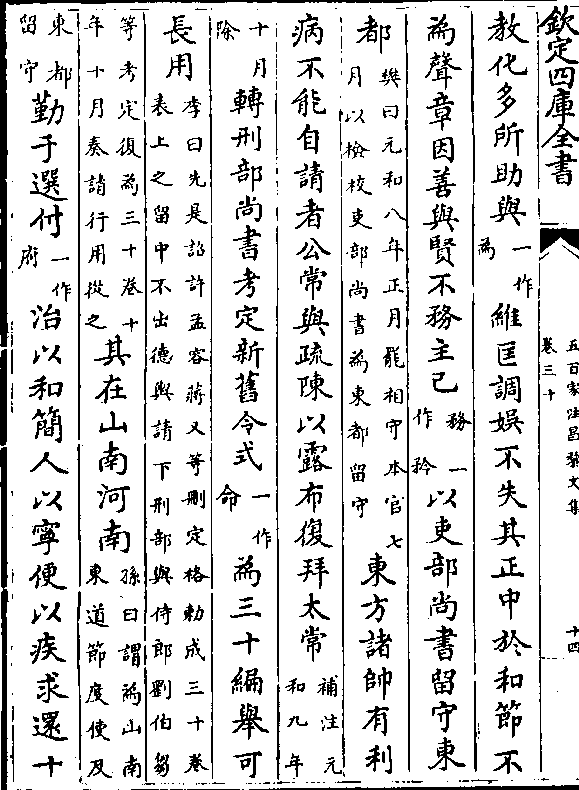 欽定四庫全書
五百家注昌黎文集
卷三十
十四
教化多所助與一作為維匡調娯不失其正中於和節不
為聲章因善與賢不務主己務一作矜以吏部尚書留守東
都樊曰元和八年正月罷相守本官七月以檢校吏部尚書為東都留守東方諸帥有利
病不能自請者公常與疏陳以露布復拜太常補注元和九年
十月除轉刑部尚書考定新舊令式一作命為三十編舉可
長用李曰先是詔許孟容蔣乂等刪定格勅成三十卷表上之留中不出德與請下刑部與侍郎劉伯芻
等考定復為三十卷十年十月奏請行用從之其在山南河南孫曰謂為山南東道節度使及
東都留守勤于選付一作府治以和簡人以寧便以疾求還十